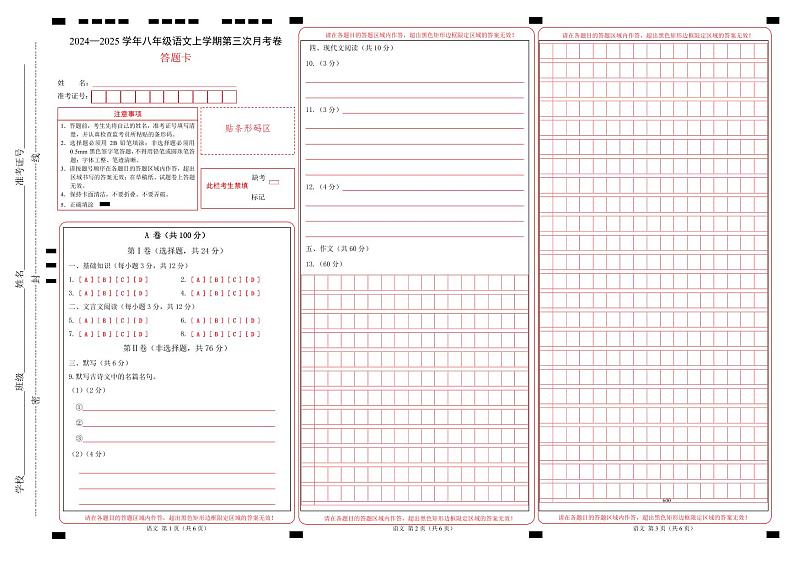 2024—2025 学年八年级语文上学期第三次月考卷
答题卡
姓 名：
准考证号：
注意事项
1．答题前，考生先将自己的姓名，准考证号填写清
楚，并认真检查监考员所粘贴的条形码。
2．选择题必须用 2B 铅笔填涂；非选择题必须用
0.5mm 黑色签字笔答题，不得用铅笔或圆珠笔答
题；字体工整、笔迹清晰。
3．请按题号顺序在各题目的答题区域内作答，超出
区域书写的答案无效；在草稿纸、试题卷上答题
无效。
4．保持卡面清洁，不要折叠、不要弄破。
5．正确填涂
贴条形码区
此栏考生禁填
缺考
标记
准考证号
姓名
班级
学校
线
封
密
A 卷（共 100 分）
第Ⅰ卷（选择题，共 24 分）
一、基础知识（每小题 3 分，共 12 分）
1.［A］［B］［C］［D］ 2.［A］［B］［C］［D］
3.［A］［B］［C］［D］ 4.［A］［B］［C］［D］
二、文言文阅读（每小题 3 分，共 12 分）
5.［A］［B］［C］［D］ 6.［A］［B］［C］［D］
7.［A］［B］［C］［D］ 8.［A］［B］［C］［D］
第Ⅱ卷（非选择题，共 76 分）
三、默写（共 6 分）
9.默写古诗文中的名篇名句。
（1）（2 分）
①
②
③
（2）（4 分）
请在各题目的答题区域内作答，超出黑色矩形边框限定区域的答案无效！
语文 第 1 页（共 6 页）
请在各题目的答题区域内作答，超出黑色矩形边框限定区域的答案无效！
四、现代文阅读（共 10 分）
10.（3 分）
11.（3 分）
12.（4 分）
五、作文（共 60 分）
13.（60 分）
请在各题目的答题区域内作答，超出黑色矩形边框限定区域的答案无效！
语文 第 2 页（共 6 页）
请在各题目的答题区域内作答，超出黑色矩形边框限定区域的答案无效！
600
请在各题目的答题区域内作答，超出黑色矩形边框限定区域的答案无效！
语文 第 3 页（共 6 页）